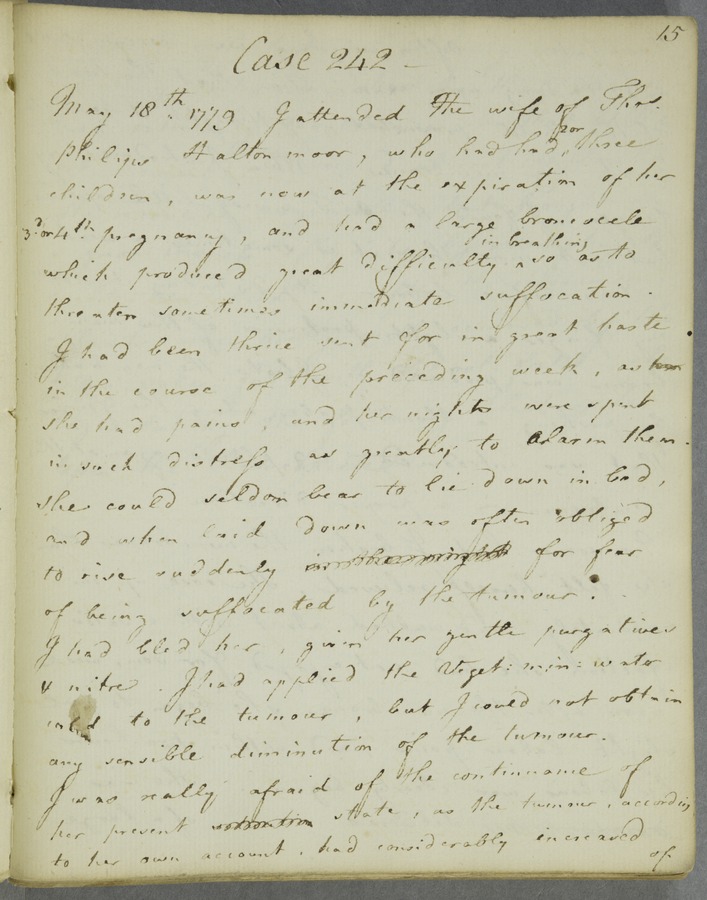 15
Case 242 -
May 18th. 1779 I attended The wife of Thos.
Philips Halton moor, who had had 2 or three
children, was now at the expiration of her
3d. or 4th. pregnancy, and had a large broncocele
which produced great difficulty in breathing so as to
threaten sometimes immediate suffocation.
I had been thrice sent for in great haste
in the course of the preceding week, as
she had pains, and her nights were spent
in such distress as greatly to alarm them.
she could seldom bear to lie down in bed,
and when laid down was often obliged
to rise suddenly in the night for fear
of being suffocated by the tumour.
I had bled her, given her gentle purgatives
& nitre. I had applied the Veget: min: water
to the tumour, but I could not obtain
any sensible diminution of the tumour.
I was really afraid of the continuance of
her present state, as the tumour, according
to her own account, had considerably increased
of